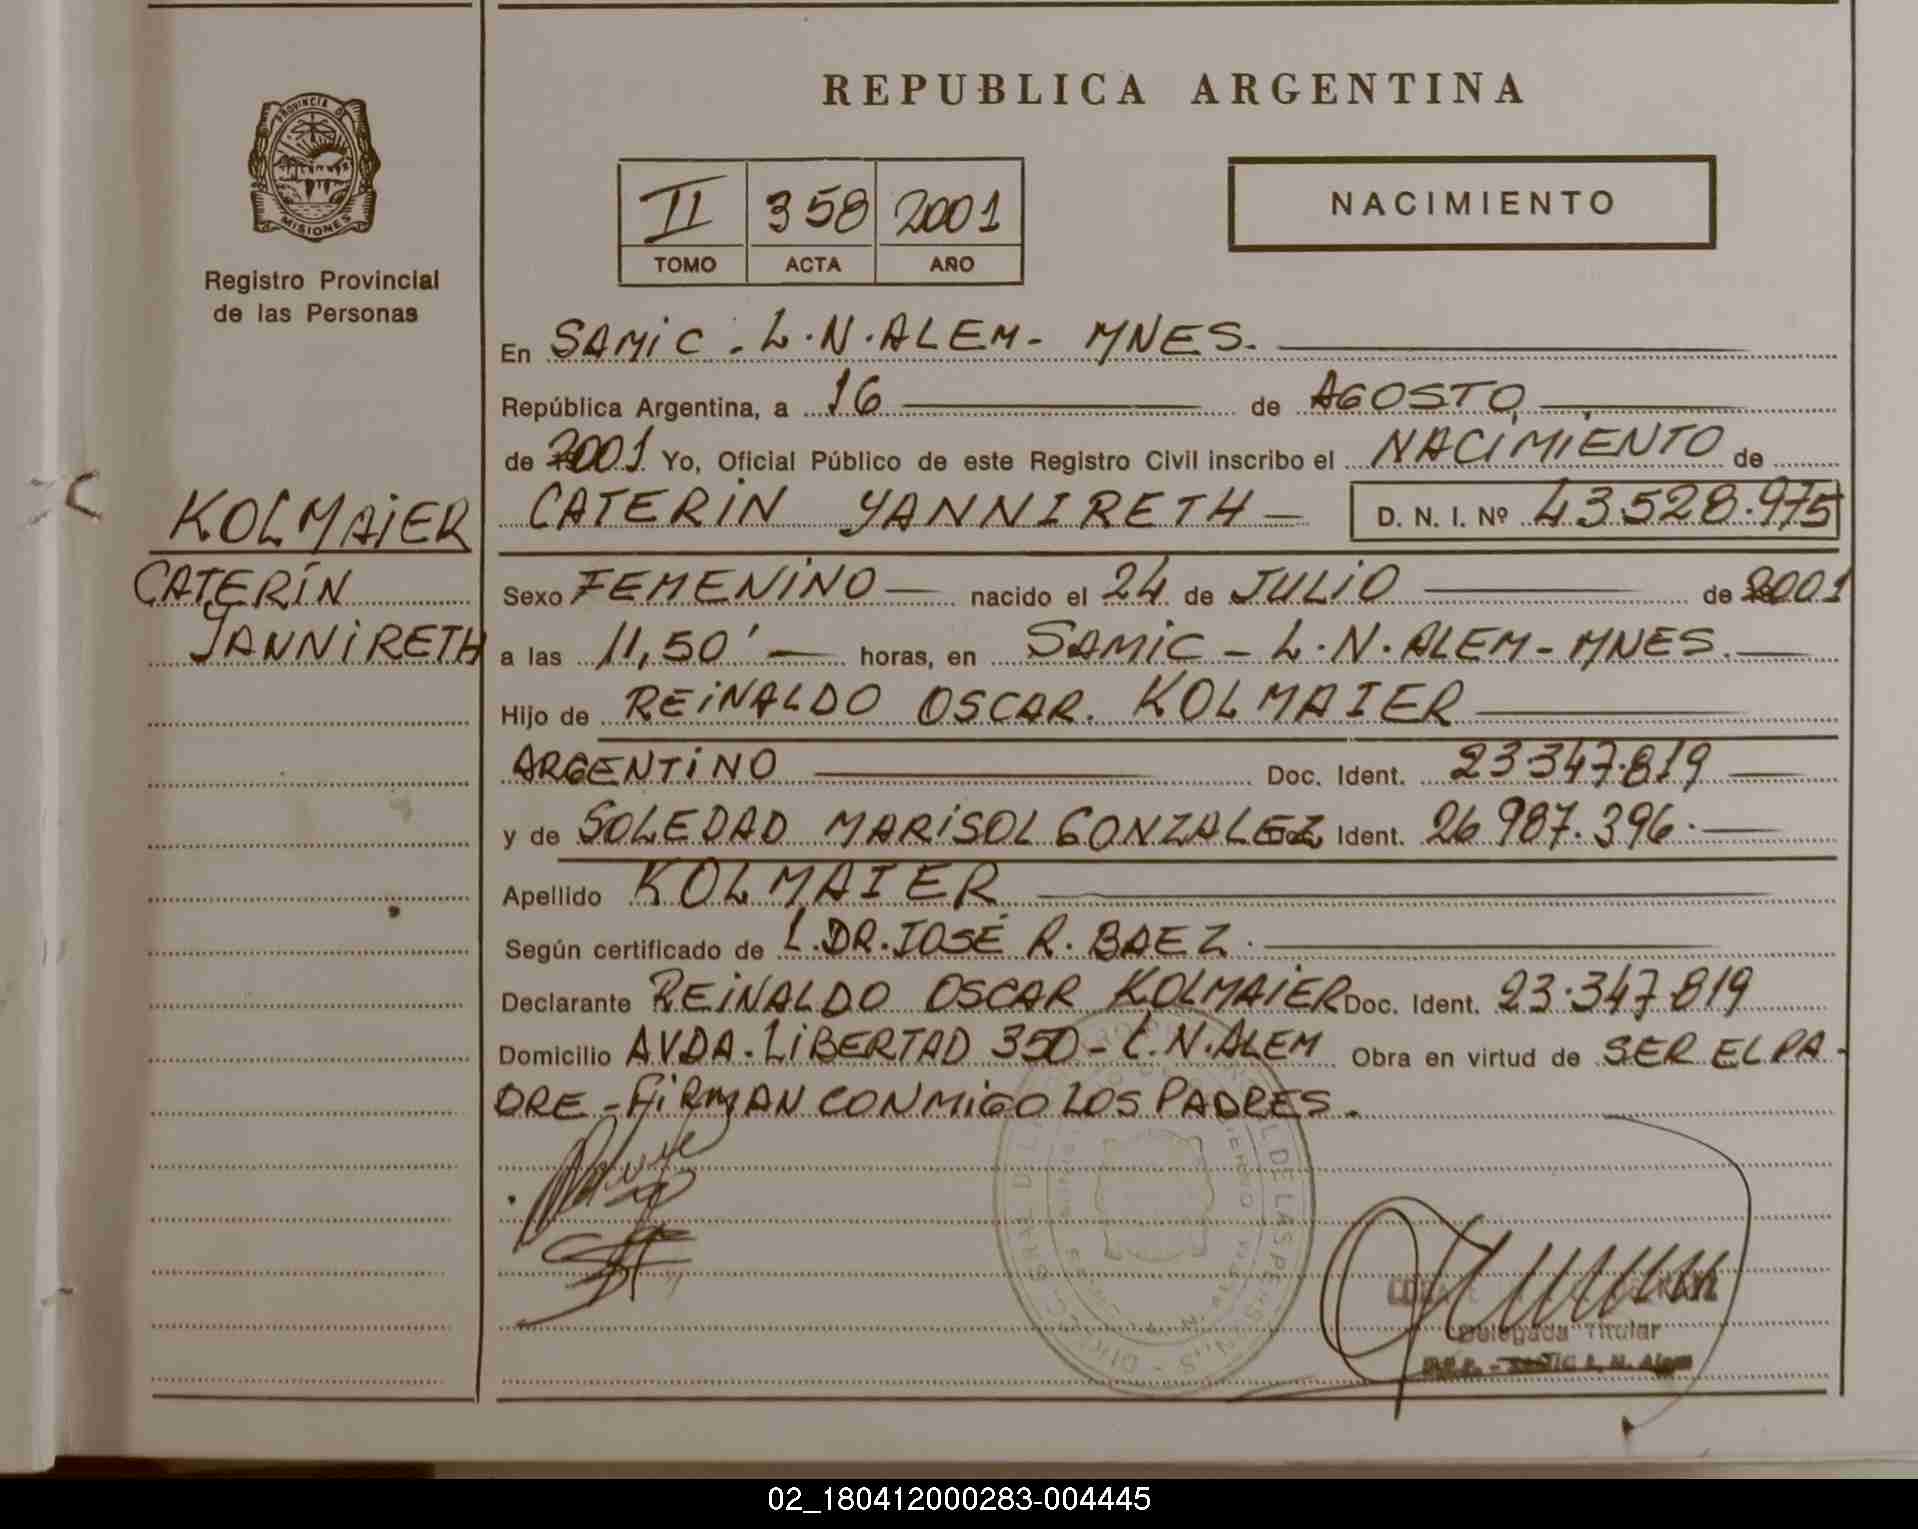 REPUBLICA ARGENTINA
PROVINCIA DE
MISIONES
Registro Provincial
de las Personas
II 358 2001
TOMO ACTA AÑO
NACIMIENTO
En SAMIC. L.N.ALEM- MNES.
República Argentina, a 16 de AGOSTO
de 2001 Yo, Oficial Público de este Registro Civil inscribo el NACIMIENTO de
KOLMAIER
CATERIN YANNIRETH D. N. I. Nº 43.528.975
CATERÍN
YANNIRETH
Sexo FEMENINO nacido el 24 de JULIO de 2001
a las 11,50' horas, en SAMIC - L.N.ALEM-MNES.
Hijo de REINALDO OSCAR. KOLMAIER
ARGENTINO Doc. Ident. 23.347.819
y de SOLEDAD MARISOL GONZALEZ Doc. Ident. 26.987.396.
Apellido KOLMAIER
Según certificado de L.DR.JOSÉ R. BAEZ.
Declarante REINALDO OSCAR KOLMAIER Doc. Ident. 23.347.819
Domicilio AVDA. LIBERTAD 350 - L.N.ALEM Obra en virtud de SER EL PA-
DRE - FIRMAN CONMIGO LOS PADRES.
Delegada Titular
L. N. Alem
02_180412000283-004445